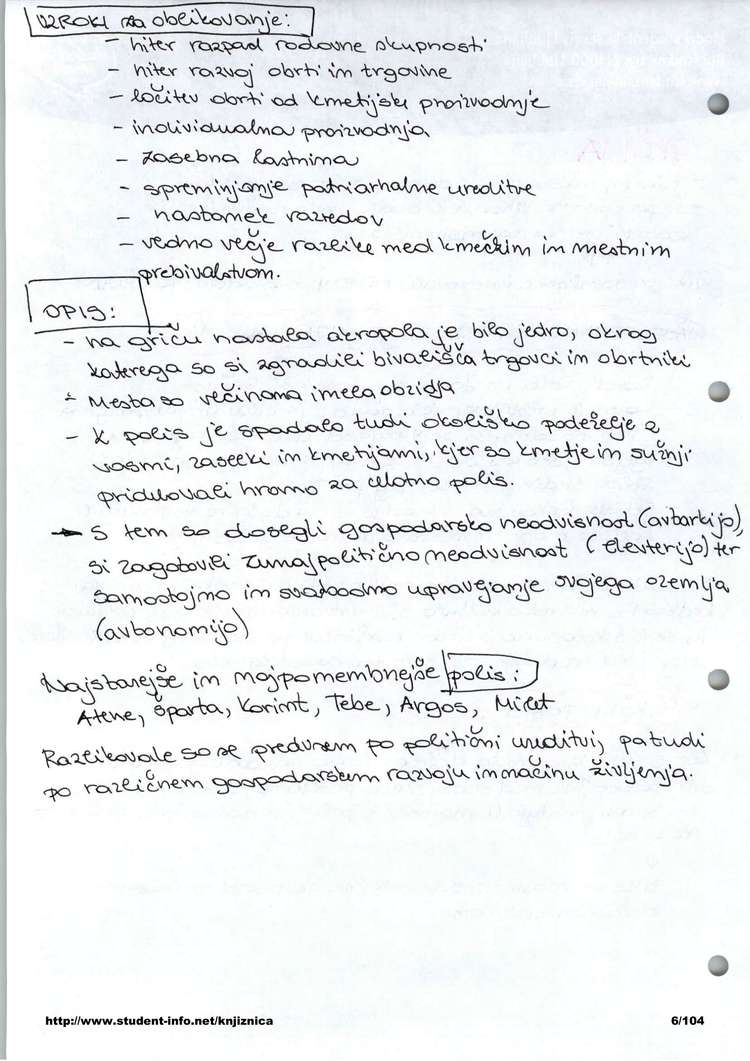 VZROKI za oblikovanje:
- hiter razpad rodovne skupnosti
- hiter razvoj obrti in trgovine
- ločitev obrti od kmetijske proizvodnje
- individualna proizvodnja
- zasebna lastnina
- spreminjanje patriarhalne ureditve
- nastanek razredov
- vedno večje razlike med kmečkim in mestnim
prebivalstvom.
OPIS:
- na griču nastala akropola je bilo jedro, okrog
katerega so si zgradili bivališča trgovci in obrtniki
- Mesta so večinoma imela obzidja
- K polis je spadalo tudi okoliško podeželje z
vasmi, zaselki in kmetijami, kjer so kmetje in sužnji
pridelovali hrano za celotno polis.
→ S tem so dosegli gospodarsko neodvisnost (avtarkijo),
si zagotovili zunajpolitično neodvisnost (elevterijo) ter
samostojno in svobodno upravljanje svojega ozemlja
(avtonomijo)
Najstarejše in najpomembnejše polis:
Atene, Šparta, Korint, Tebe, Argos, Milet
Razlikovale so se predvsem po politični ureditvi, pa tudi
po različnem gospodarskem razvoju in načinu življenja.
http://www.student-info.net/knjiznica
6/104